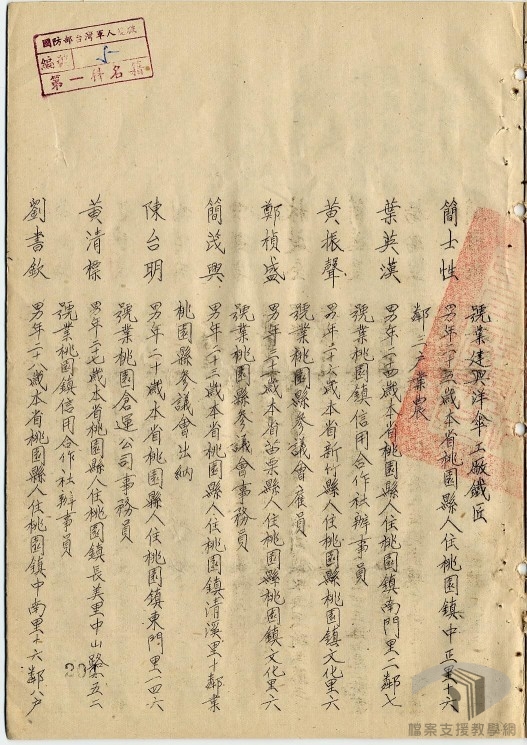 國防部台灣軍人監獄
編號
5
第一件名籍
號業建興洋傘工廠鐵匠
簡士性 男年二十五歲本省桃園縣人住桃園鎮中正里十六
鄰三戶業農
葉英漢 男年二四歲本省桃園縣人住桃園鎮南門里二鄰七
號業桃園鎮信用合作社辦事員
黃振聲 男年二十六歲本省新竹縣人住桃園縣桃園鎮文化里六
號業桃園縣參議會雇員
鄭楨盛 男年三十歲本省苗栗縣人住桃園縣桃園鎮文化里六
號業桃園縣參議會事務員
簡茂興 男年二十三歲本省桃園縣人住桃園鎮清溪里十鄰業
桃園縣參議會出納
陳台明 男年二十歲本省桃園縣人住桃園鎮東門里一四六
號業桃園倉運公司事務員
黃清標 男年二七歲本省桃園縣人住桃園鎮長美里中山路五二
號業桃園鎮信用合作社辦事員
劉書欽 男年二十八歲本省桃園縣人住桃園鎮中南里十六鄰八戶
20
檔案支援教學網